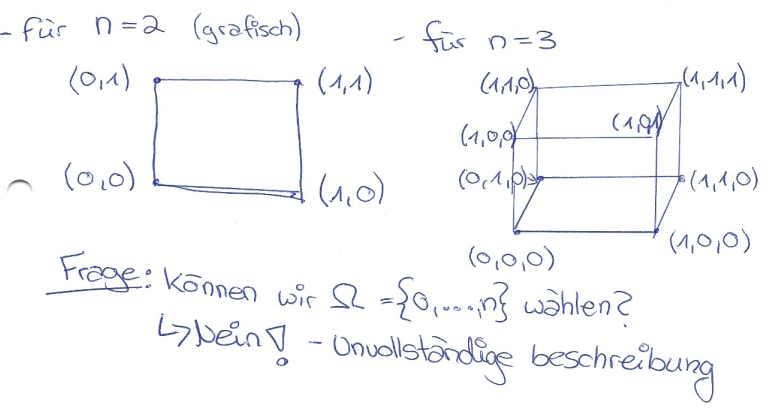 - für n=2 (grafisch)
- für n=3
(0,1) (1,1)
(0,0) (1,0)
(1,1,0) (1,1,1)
(1,0,0) (1,0,1)
(0,1,0) (1,1,0)
(0,0,0) (1,0,0)
Frage: Können wir Ω = {0,....,n} wählen?
↳ Nein! - Unvollständige beschreibung